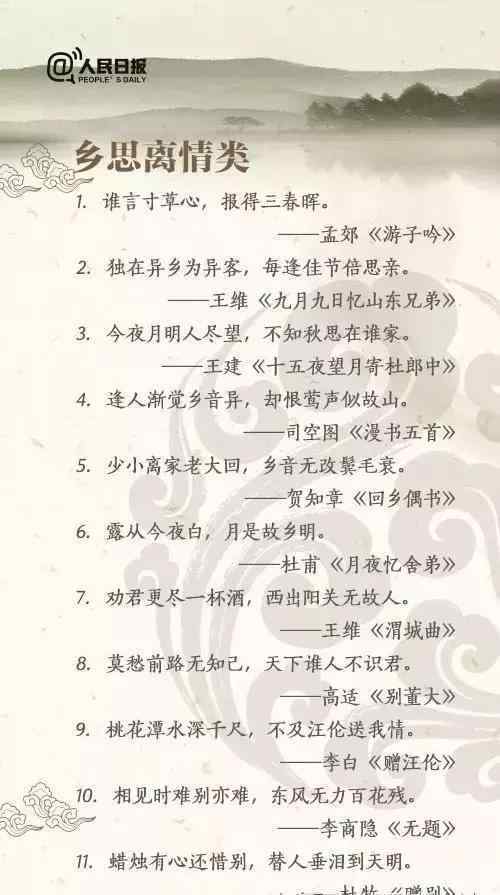 @人民日报
PEOPLE'S DAILY
乡思离情类
1. 谁言寸草心，报得三春晖。
——孟郊《游子吟》
2. 独在异乡为异客，每逢佳节倍思亲。
——王维《九月九日忆山东兄弟》
3. 今夜月明人尽望，不知秋思在谁家。
——王建《十五夜望月寄杜郎中》
4. 逢人渐觉乡音异，却恨莺声似故山。
——司空图《漫书五首》
5. 少小离家老大回，乡音无改鬓毛衰。
——贺知章《回乡偶书》
6. 露从今夜白，月是故乡明。
——杜甫《月夜忆舍弟》
7. 劝君更尽一杯酒，西出阳关无故人。
——王维《渭城曲》
8. 莫愁前路无知己，天下谁人不识君。
——高适《别董大》
9. 桃花潭水深千尺，不及汪伦送我情。
——李白《赠汪伦》
10. 相见时难别亦难，东风无力百花残。
——李商隐《无题》
11. 蜡烛有心还惜别，替人垂泪到天明。
——杜牧《赠别》